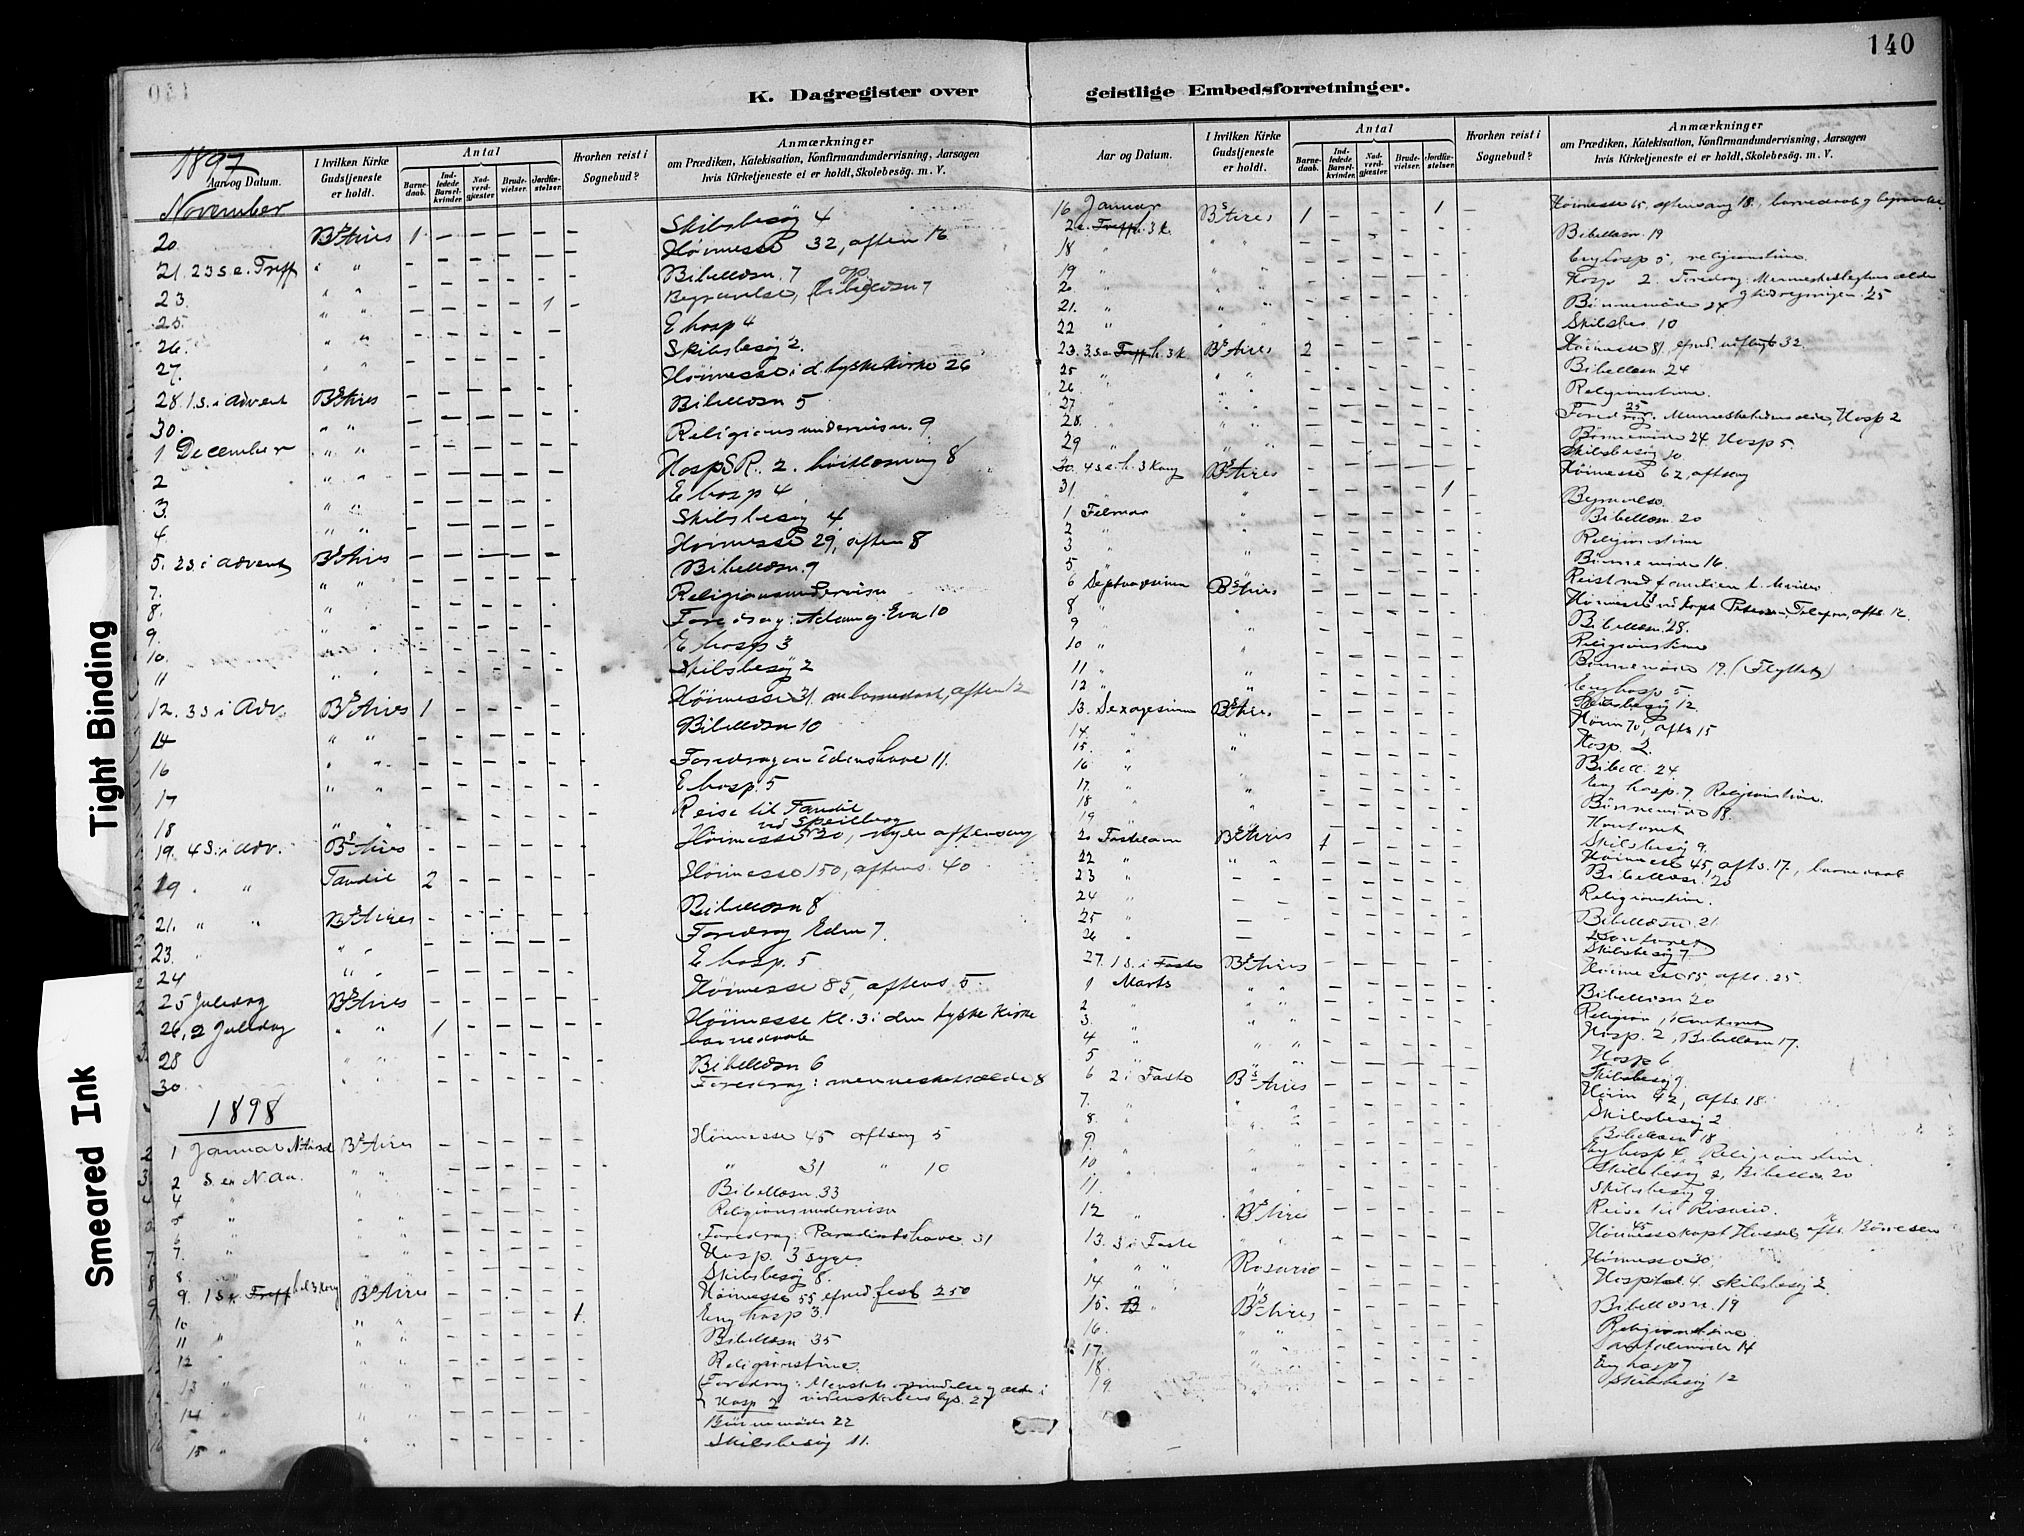 140
K. Dagregister over geistlige Embedsforretninger.
Tight Binding
Smeared Ink
1897
Aar og Datum.
I hvilken Kirke Gudstjeneste er holdt.
Antal
Barnedaab.
Indledede Barselkvinder.
Nadverdgjæster
Brudevielser.
Jordfæstelser.
Hvorhen reist i Sognebud?
Anmærkninger
om Prædiken, Katekisation, Konfirmandundervisning, Aarsagen
hvis Kirketjeneste ei er holdt, Skolebesög. m. V.
November
20 Bs Aires 1 – – – – – Skibsbesög 4
21. 23 s. e. Treff " " – – – – – Höimesse 32, aften 16
23. " " – – – – – Bibellæsn. 7
25. " " – – – – 1 – Begravelse, bibellæsn 7
26. " " – – – – – E hosp 4
27. " " – – – – – Skibsbesög 2.
28. 1 s. i Advent Bs Aires – – – – – Höimesse i d. tyske Kirke 26
30. " " – – – – – Bibellæsn 5
1 December " " – – – – – Religionsundervisn. 9
2 " " – – – – – Hosp S.R. 2. höitlæsning 8
3. " " – – – – – E hosp 4
4. " " – – – – – Skibsbesög 4
5. 2 s. i Advent Bs Aires – – – – – Höimesse 29, aften 8
7. " " – – – – – Bibellæsn. 9
8. " – – – – – Religionsundervisn
9 " " – – – – – Foredrag: Adam og Eva 10
10. " – – – – – E hosp 3
11 " " – – – – – Skibsbesög 2
12. 3 s i Adv. Bs Aires 1 – – – – – Höimesse 31. barnedaab, aften 12
14 " " – – – – – Bibellæsn 10
16 " " – – – – – Foredrag om Edens have 11.
17 " " – – – – – E hosp. 5
18 " " – – – – – Reise til Tandil
19. 4 S. i adv. Bs Aires – – – – – Höimesse 20, ingen aftensang
19 " Tandil 2 – – – – – Höimesse 150, aftens. 40
21. " " Bs Aires – – – – – Bibellæsn 8
23. " " " – – – – – Foredrag Eden 7.
24 " " – – – – – E hosp. 5
25 Juledag Bs Aires – – – – – Höimesse 85, aftens. 5.
26, 2 Juledag " " 1 – – – – – Höimesse kl. 3 i den tyske Kirke
barnedaab
28 " " – – – – – Bibellæsn 6
30 " " – – – – – Foredrag: menneskets ælde 8
1898
1 Januar Bs Aires – – – – – Höimesse 45 aftsang 5
2 S. e. N. Aa. " " – – – – – " 31 " 10
4 " " " – – – – – Bibellæsn. 33
5 " " " – – – – – Religionsundervisn
6 " " " – – – – – Foredrag: Paradisets have. 31
7. " " " – – – – – Hosp. 3 syge
8 " " " – – – – – Skibsbesög 8.
9. 1 s. e. Treff hel 3 kong Bs Aires – – – – – Höimesse 55 efmd. fest 250
10 " " – – – – 1. Eng hosp 3.
11 " " " – – – – – Bibellæsn 35
12 " " " – – – – – Religionstime.
13 " " " – – – – – Foredrag: Menskets oprindelse og ælde i
Hosp 2 videnskabens lys. 27
14 " " – – – – – Bönnemöde 22
15 " " " – – – – – Skibsbesög 11.
Aar og Datum.
I hvilken Kirke Gudstjeneste er holdt.
Antal
Barnedaab.
Indledede Barselkvinder.
Nadverdgjæster
Brudevielser.
Jordfæstelser.
Hvorhen reist i Sognebud?
Anmærkninger
om Prædiken, Katekisation, Konfirmandundervisning, Aarsagen
hvis Kirketjeneste ei er holdt, Skolebesög. m. V.
16 Januar Bs Aires 1 – – – 1 – Höimesse 65, aftensang 18, barnedaab og begravelse
2 e. Treff h. 3 k.
18 " " – – – – – Bibellæsn. 19
19 " " " – – – – – Eng hosp 5, religionstime
20. " " " – – – – – Hosp 2. Foredrag: Menneskeslegtens ælde
og tidsregningen. 25
21. " " – – – – – Bönnemöde 24
22 " " – – – – – Skibsbes 10
23. 3. s e Treff h. 3 k Bs Aires 2 – – – – Höimesse 81, 32
25 " " " – – – – – Bibellæsn 24
26 " " – – – – – Religionstime.
27 " " " – – – – – Foredrag 25. Menneskehedens ælde, Hosp 2
28. " " – – – – – Bönnemöde 24. Hosp 5.
29 " " – – – – – Skibsbesög 10
30. 4 s e. h. 3 kong Bs Aires – – – – – Höimesse 62, aftsang
31. " " – – – – 1 – Begravelse
1 Februar " – – – – – Bibellæsn 20
2 " " – – – – – Religionstime
3 " " – – – – – Bönnemöde 16.
5. " " – – – – – Reist
6 Septuagesima Bs Aires – – – – – Höimesse afts. 12
8 " " – – – – – Bibellæsn. 28.
9 " – – – – – Religionstime
10 " " – – – – – Bönnemöde 19. (Flyttet)
11 " " – – – – – Eng hosp 5.
12 " " – – – – – Skibsbesög 12
13. Sexagesima Bs Aires – – – – – Höim 70, afts 15
14. " " – – – – – Hosp. 2.
15. " " – – – – – Bibell. 24
16 " – – – – – Eng hosp. 7. Religionstime.
17. " – – – – – Bönnemöde 18.
18 " " – – – – – Kontoret
19 " " – – – – – Skibsbesög 9.
20 Fastelavn Bs Aires 1 – – – – Höimesse 45, afts. 17., barnedaab
22 " " " – – – – – Bibellæsn. 20
23 " – – – – – Religionstime.
24 " – – – – – Bibellæsn 21
25 " – – – – – Kontoret
26 " – – – – – Skibsbesög 7
27. 1 s. i Faste Bs Aires – – – – – Höimesse 55, afts. 25.
1 Marts " " – – – – – Bibellæsn 20
2 " " " – – – – – Religion, Kontoret
3. " " – – – – – Hosp. 2, Bibellæsn 17.
4 " " " – – – – – Hosp 6
5 " " – – – – – Skibsbesög 9.
6 2 i Faste Bs Aires – – – – – Höim 42, afts. 18.
7. " " " – – – – – Skibsbesög 2
8. " " – – – – – Bibellæsn 18
9. " " – – – – – Eng hosp 4, Religionstime.
10 " " – – – – – Skibsbesög 2, Bibellæs. 20
11. " " – – – – – Skibsbesög 9
12 " Bs Aires – – – – – Reise til Rosario.
13. 3 i Faste " " – – – – – Höimesse 45 kapt afts. Börresen
" " " Rosario – – – – – Höimesse 30,
14. " – – – – – Hospital 4. skibsbesög 2.
15. " Bs Aires – – – – – Bibellæsn. 19
16. " " – – – – – Religionstime
17. " " – – – – – 14
18. " – – – – – Eng hosp 7
19. " – – – – – Skibsbesög 12